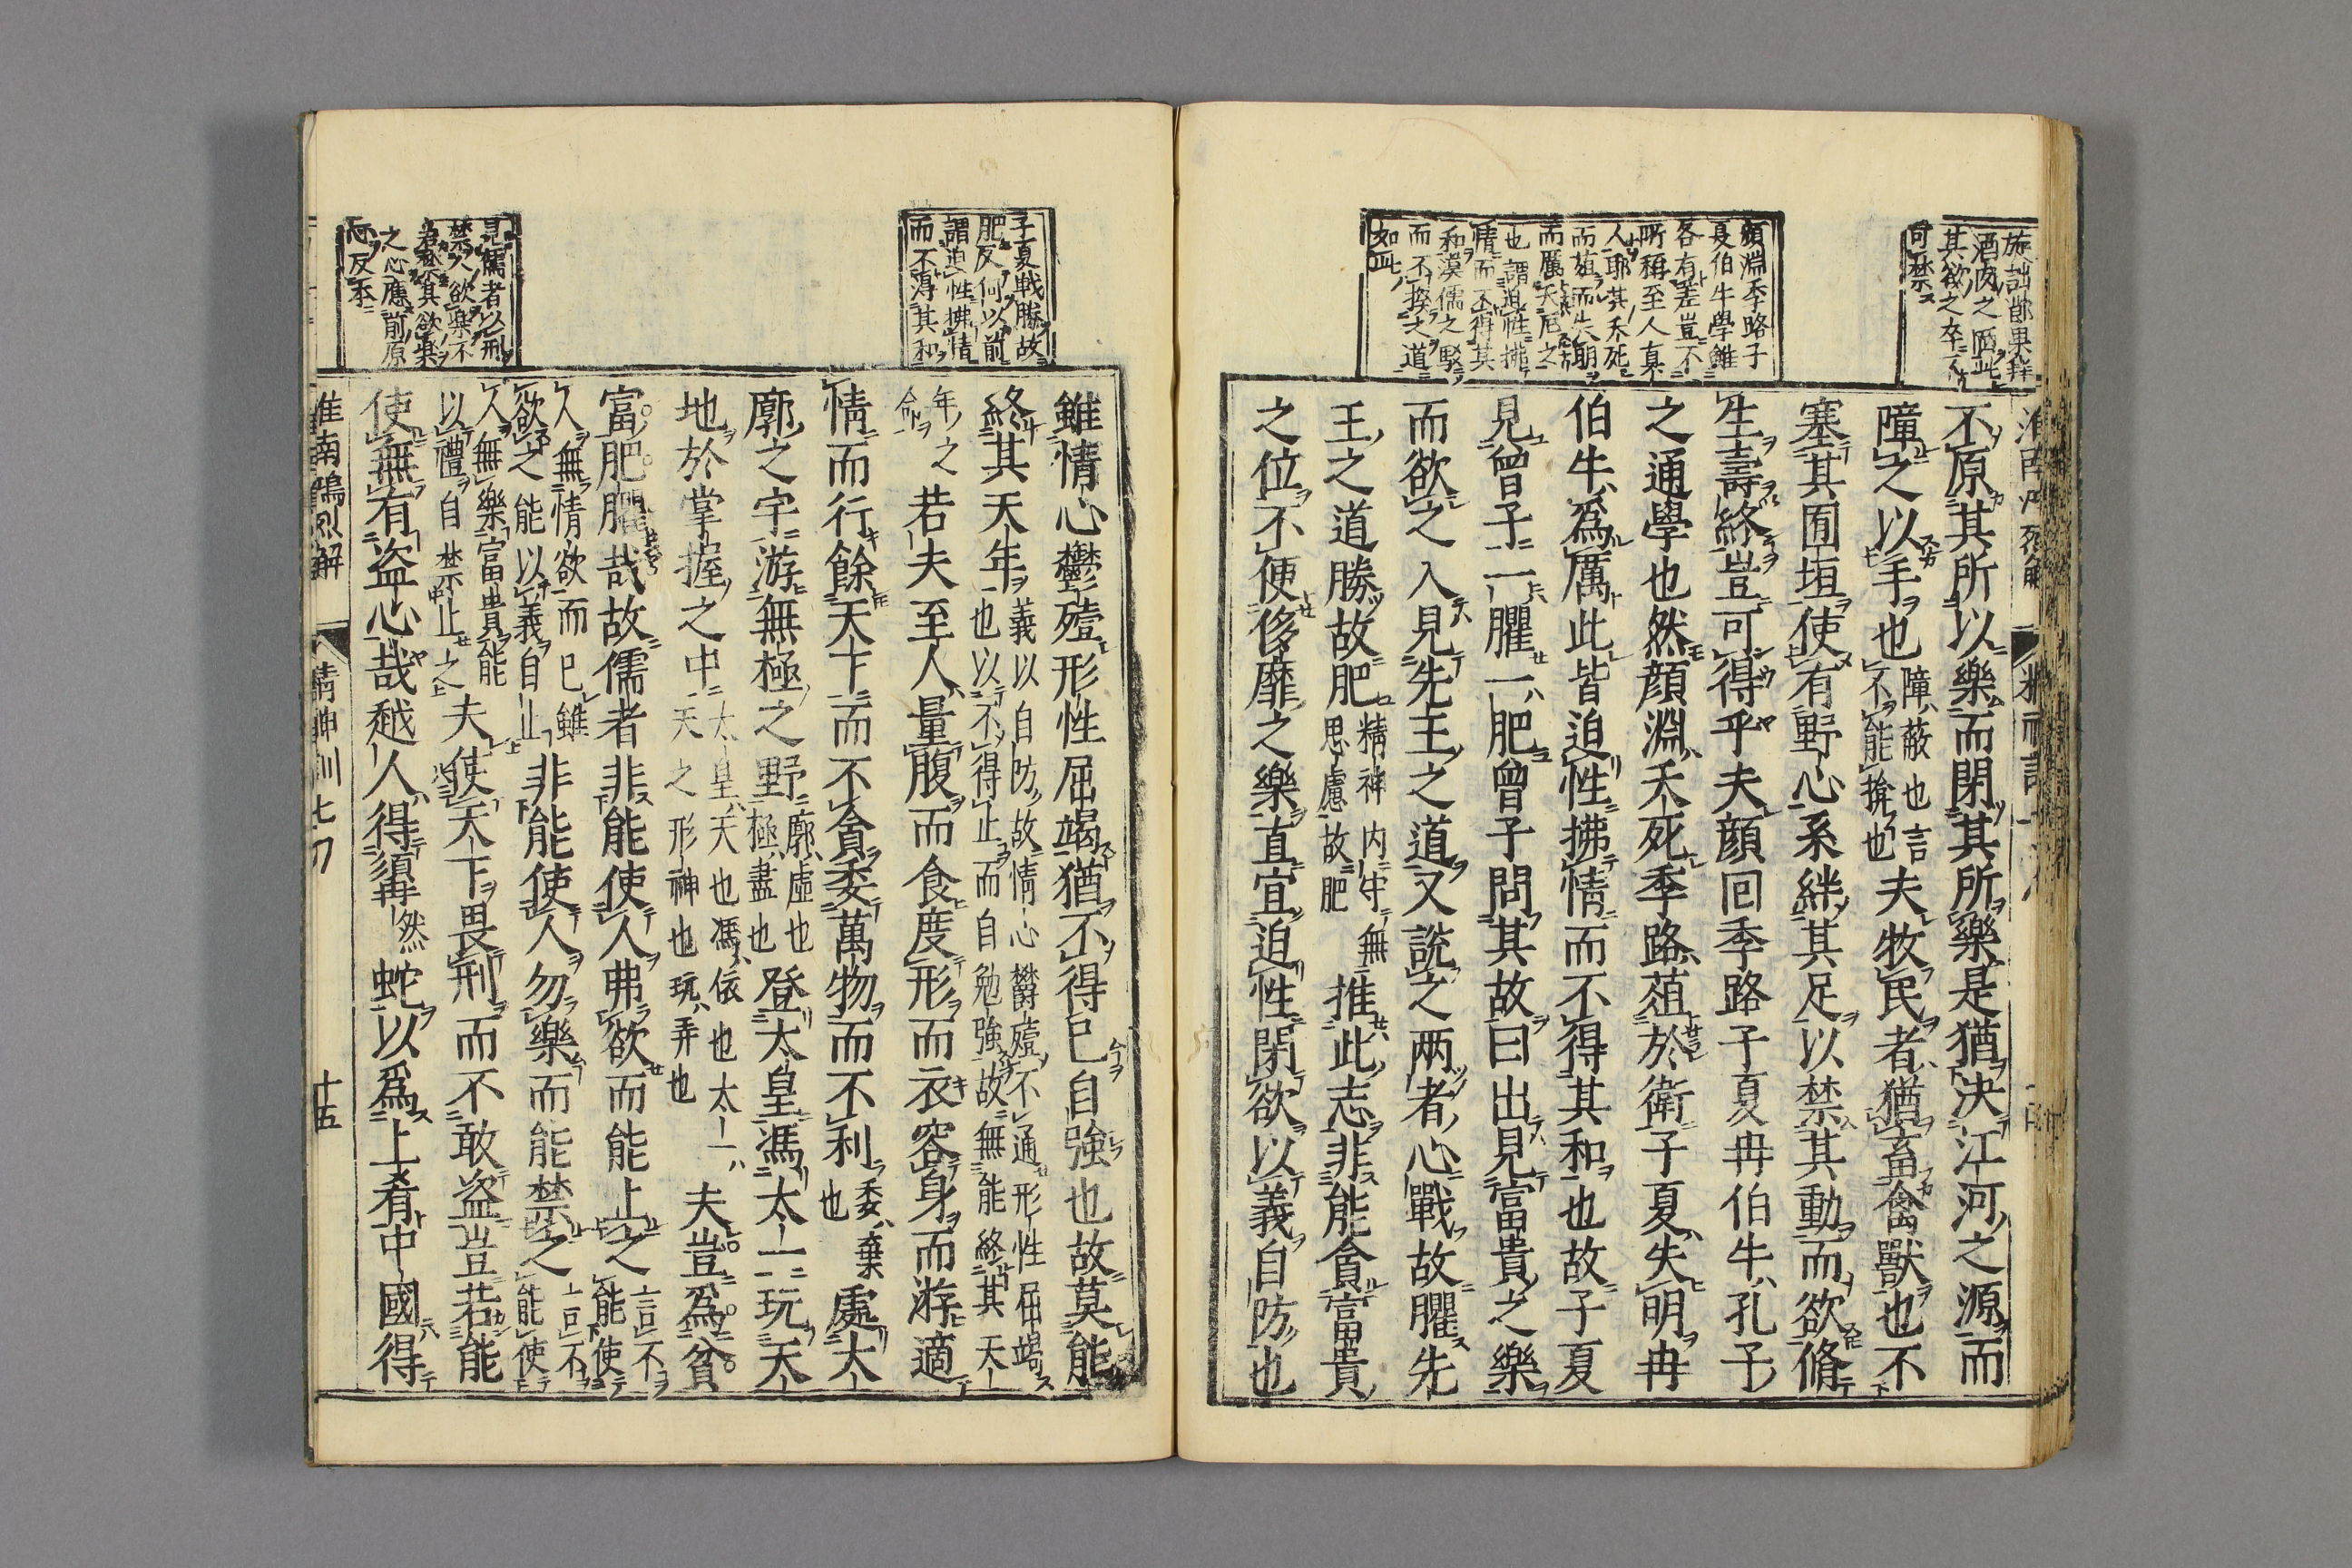 酒肉之
其欲之卒不
可禁
不原其所以樂而閉其所樂是猶決江河之源而
障之以手也障蔽也言不能揜也夫牧民者猶畜禽獸也不
塞其囿垣使有野心系絆其足以禁其動而欲脩
生壽終豈可得乎夫顔回季路子夏冉伯牛孔子
之通學也然顔淵夭死季路葅於衛子夏失明冉
伯牛爲厲此皆迫性拂情而不得其和也故子夏
見曾子一臞一肥曾子問其故曰出見富貴之樂
而欲之入見先王之道又說之两者心戰故臞先
王之道勝故肥精神内守無思慮故肥推此志非能貪富貴
之位不便侈靡之樂直宜迫性閉欲以義自防也
顔淵季路子
夏伯牛學雖
各有差豈不
所稱至人真
人耶其夭死
而葅而失明
而厲夭厄之
也謂迫性拂
情而不得其
和漠儒之駁
而不揆之道
如此
雖情心鬱殪形性屈竭猶不得已自強也故莫能
終其天年義以自防故情心欝殪不通形性屈竭也以不得止而自勉強故無能終其天
年之命若夫至人量腹而食度形而衣容身而游適
情而行餘天下而不貪委萬物而不利委棄也處大
廓之宇游無極之野廓虛也極盡也登太皇馮太一玩天
地於掌握之中太皇天也馮依也太一天之形神也玩弄也夫豈爲貧
富肥臞哉故儒者非能使人弗欲而能止之言不能使
人無情欲而已雖欲之能以義自止非能使人勿樂而能禁之言不能使
人無樂富貴能以禮自禁止之夫使天下畏刑而不敢盗豈若能
使無有盗心哉越人得髯蛇以爲上肴中國得
子夏戰勝故
肥反何以前
謂迫性拂情
而不得其和
見儒者以刑
禁人欲樂不
若禁其欲樂
之心應前原
心反本
淮南鴻烈解 精神訓七 十五